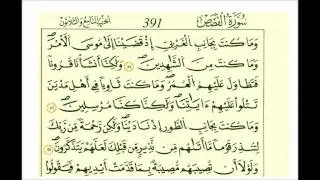 سُورَةُ القَصَصِ 391 الحزب التاسع والثلاثون
وَمَا كُنتَ بِجَانِبِ ٱلْغَرْبِيِّ إِذْ قَضَيْنَآ إِلَىٰ مُوسَى ٱلْأَمْرَ
وَمَا كُنتَ مِنَ ٱلشَّٰهِدِينَ وَلَٰكِنَّآ أَنشَأْنَا قُرُونًا
فَتَطَاوَلَ عَلَيْهِمُ ٱلْعُمُرُ وَمَا كُنتَ ثَاوِيًا فِىٓ أَهْلِ مَدْيَنَ
تَتْلُوا۟ عَلَيْهِمْ ءَايَٰتِنَا وَلَٰكِنَّا كُنَّا مُرْسِلِينَ
وَمَا كُنتَ بِجَانِبِ ٱلطُّورِ إِذْ نَادَيْنَا وَلَٰكِن رَّحْمَةً مِّن رَّبِّكَ
لِتُنذِرَ قَوْمًا مَّآ أَتَىٰهُم مِّن نَّذِيرٍ مِّن قَبْلِكَ لَعَلَّهُمْ يَتَذَكَّرُونَ
وَلَوْلَآ أَن تُصِيبَهُم مُّصِيبَةٌۢ بِمَا قَدَّمَتْ أَيْدِيهِمْ فَيَقُولُوا۟